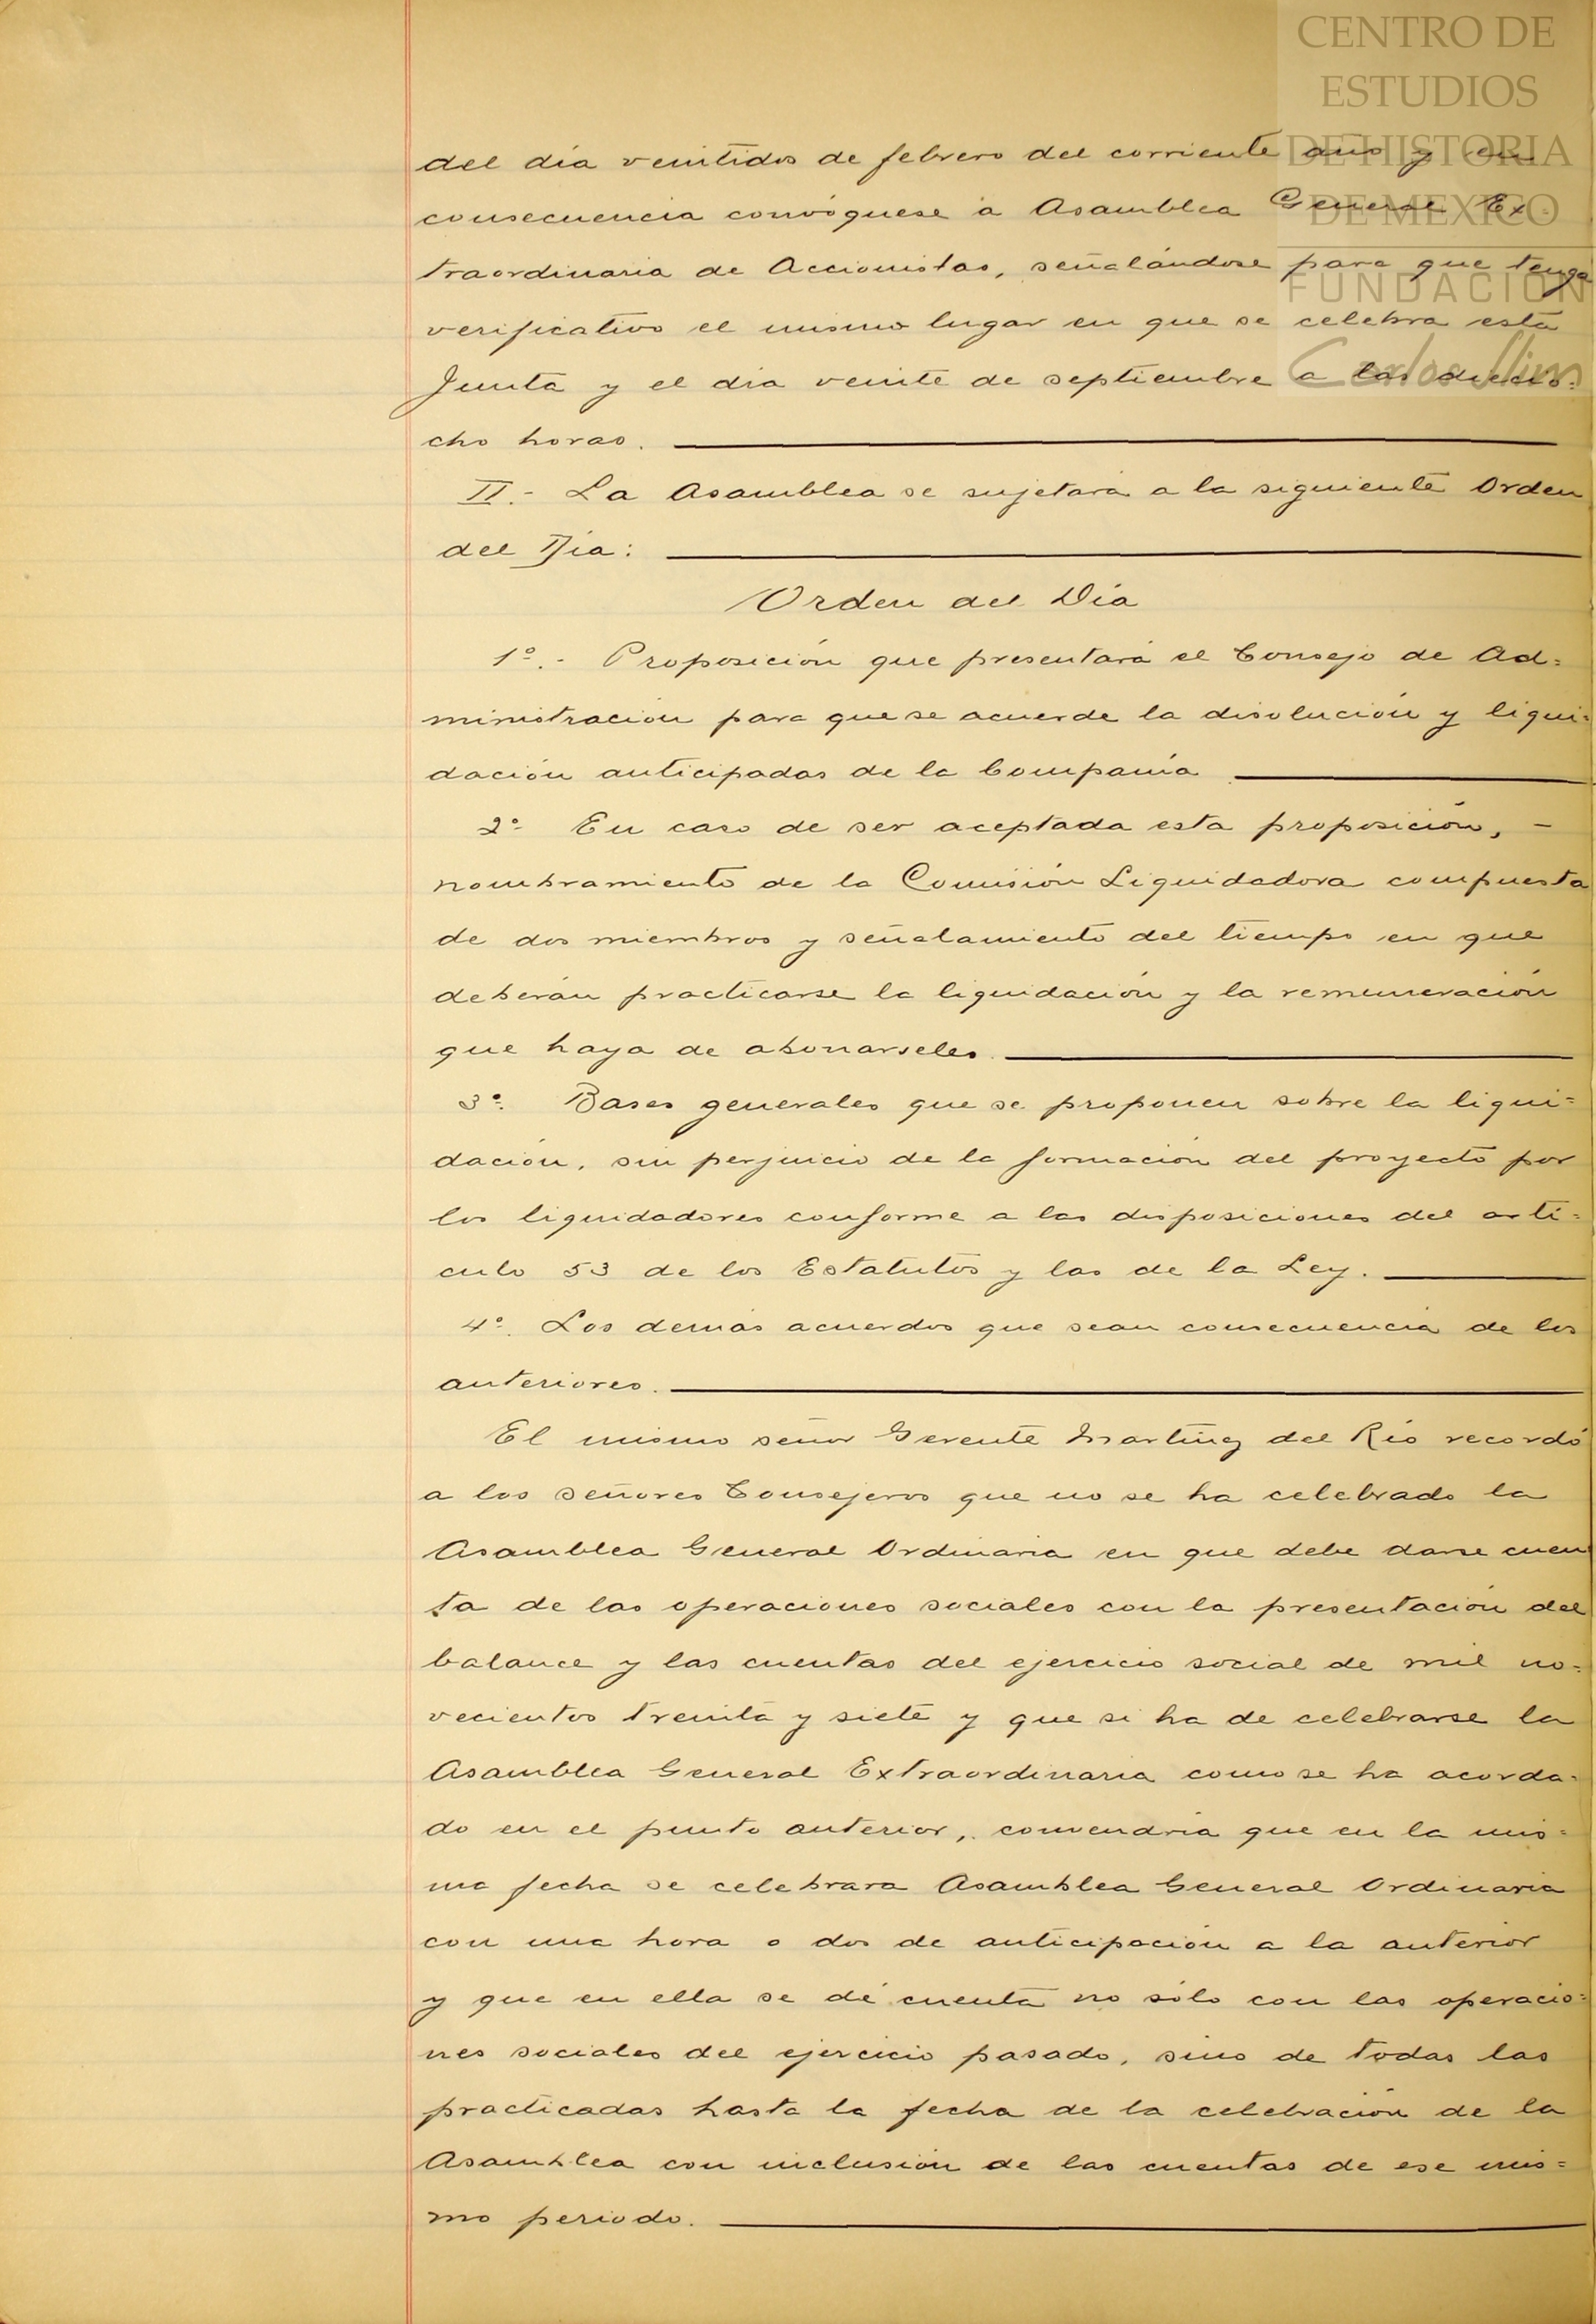 CENTRO DE
ESTUDIOS
DE HISTORIA
DE MEXICO
FUNDACIÓN
Carlos Slim
del día veintidos de febrero del corriente año y en
consecuencia convóquese a Asamblea General Ex-
traordinaria de Accionistas, señalándose para que tenga
verificativo el mismo lugar en que se celebra esta
Junta y el día veinte de septiembre a las diecio=
cho horas.
II.- La Asamblea se sujetará a la siguiente Orden
del Día:
Orden del Día
1º.- Proposición que presentará el Consejo de Ad=
ministración para que se acuerde la disolución y liqui=
dación anticipadas de la Compañía
2º En caso de ser aceptada esta proposición, -
nombramiento de la Comisión Liquidadora compuesta
de dos miembros y señalamiento del tiempo en que
deberán practicarse la liquidación y la remuneración
que haya de abonarseles.
3º. Bases generales que se proponen sobre la liqui=
dación, sin perjuicio de la formación del proyecto por
los liquidadores conforme a las disposiciones del artí=
culo 53 de los Estatutos y las de la Ley.
4º. Los demás acuerdos que sean consecuencia de los
anteriores.
El mismo señor Gerente Martínez del Río recordó
a los señores Consejeros que no se ha celebrado la
Asamblea General Ordinaria en que debe darse cuen
ta de las operaciones sociales con la presentación del
balance y las cuentas del ejercicio social de mil no=
vecientos treinta y siete y que si ha de celebrarse la
Asamblea General Extraordinaria como se ha acorda=
do en el punto anterior, convendría que en la mis=
ma fecha se celebrara Asamblea General Ordinaria
con una hora o dos de anticipación a la anterior
y que en ella se dé cuenta no sólo con las operacio=
nes sociales del ejercicio pasado, sino de todas las
practicadas hasta la fecha de la celebración de la
Asamblea con inclusión de las cuentas de ese mis=
mo periodo.